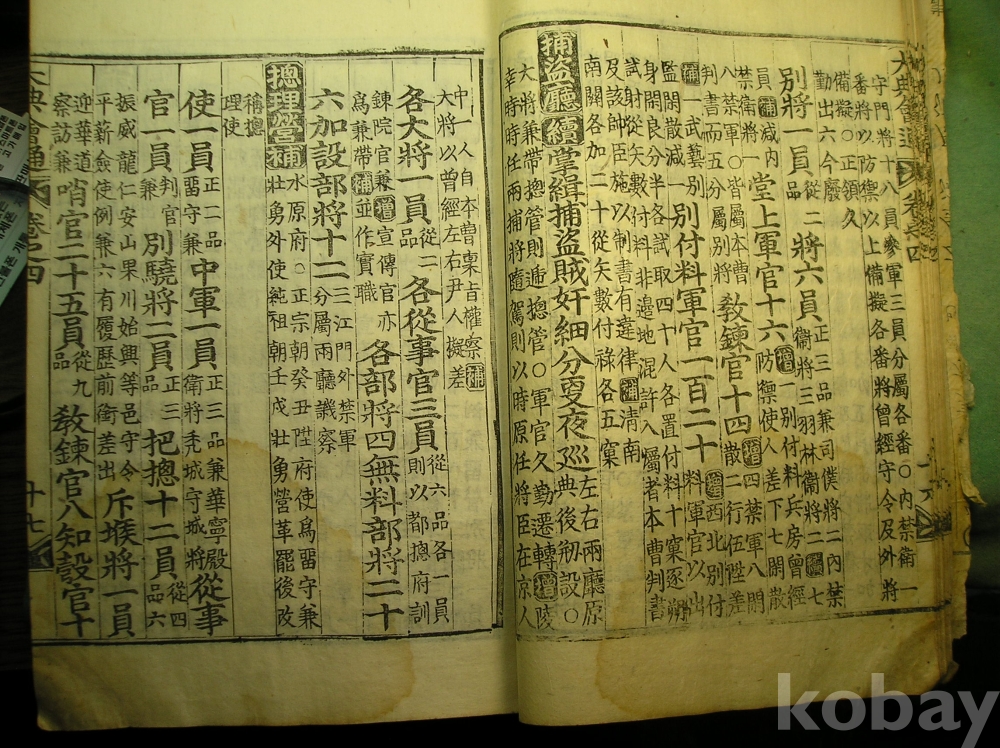 大典會通 卷之四 十六
守門將十八員參軍三員分屬各番○內禁衛一
番將以防禦以上備擬各番將曾經守令及外將
備擬○正領久
勤出六今廢
別將一員從二品將六員正三品兼司僕將二內禁衛將三羽林衛將二續七
員補減內禁衛將一堂上軍官十六續一別付料兵房曾經防禦使人差下七閑散
八禁軍○皆屬本曹判書而五分屬別將敎鍊官十四續四禁軍八閑散二行伍陞差
補一武兼監閑散減一藝別別付料軍官一百二十續西北別付料軍官以出
身閑良分半各試取四十人各置付料十窠逐朔
試射從矢數付料非邊地混許入屬者本曹判書
及該帥臣施以制書有違律補淸南
南關各加二十從矢數付祿各五窠
捕盜廳續掌緝捕盜賊奸細分更夜巡左右兩廳原典後刱設○
大將兼帶摠管則遞摠管○軍官久勤遷轉續陵
幸時時任兩捕將隨駕則以時原任將臣在京人
中一人自本曹稟旨權察補
大將以曾經左右尹人擬差
各大將一員從二品各從事官三員從六品各一員則以都摠府訓
鍊院官兼續宣傳官亦爲兼帶補並作實職各部將四無料部將二十
六加設部將十二三江門外禁軍分屬兩廳譏察
摠理營補水原府○正宗朝癸丑陞府使爲留守兼壯勇外使純祖朝壬戌壯勇營革罷後改
稱摠理使
使一員正二品留守兼中軍一員正三品兼華寧殿衛將禿城守城將從事
官一員判官兼別驍將二員正三品把摠十二員從四品六
振威龍仁安山果川始興等邑守令平薪僉使例兼六有履歷前銜差出斥堠將一員
迎華道察訪兼哨官二十五員從九品敎鍊官八知彀官十
大典會通 卷之四 十七
kobay